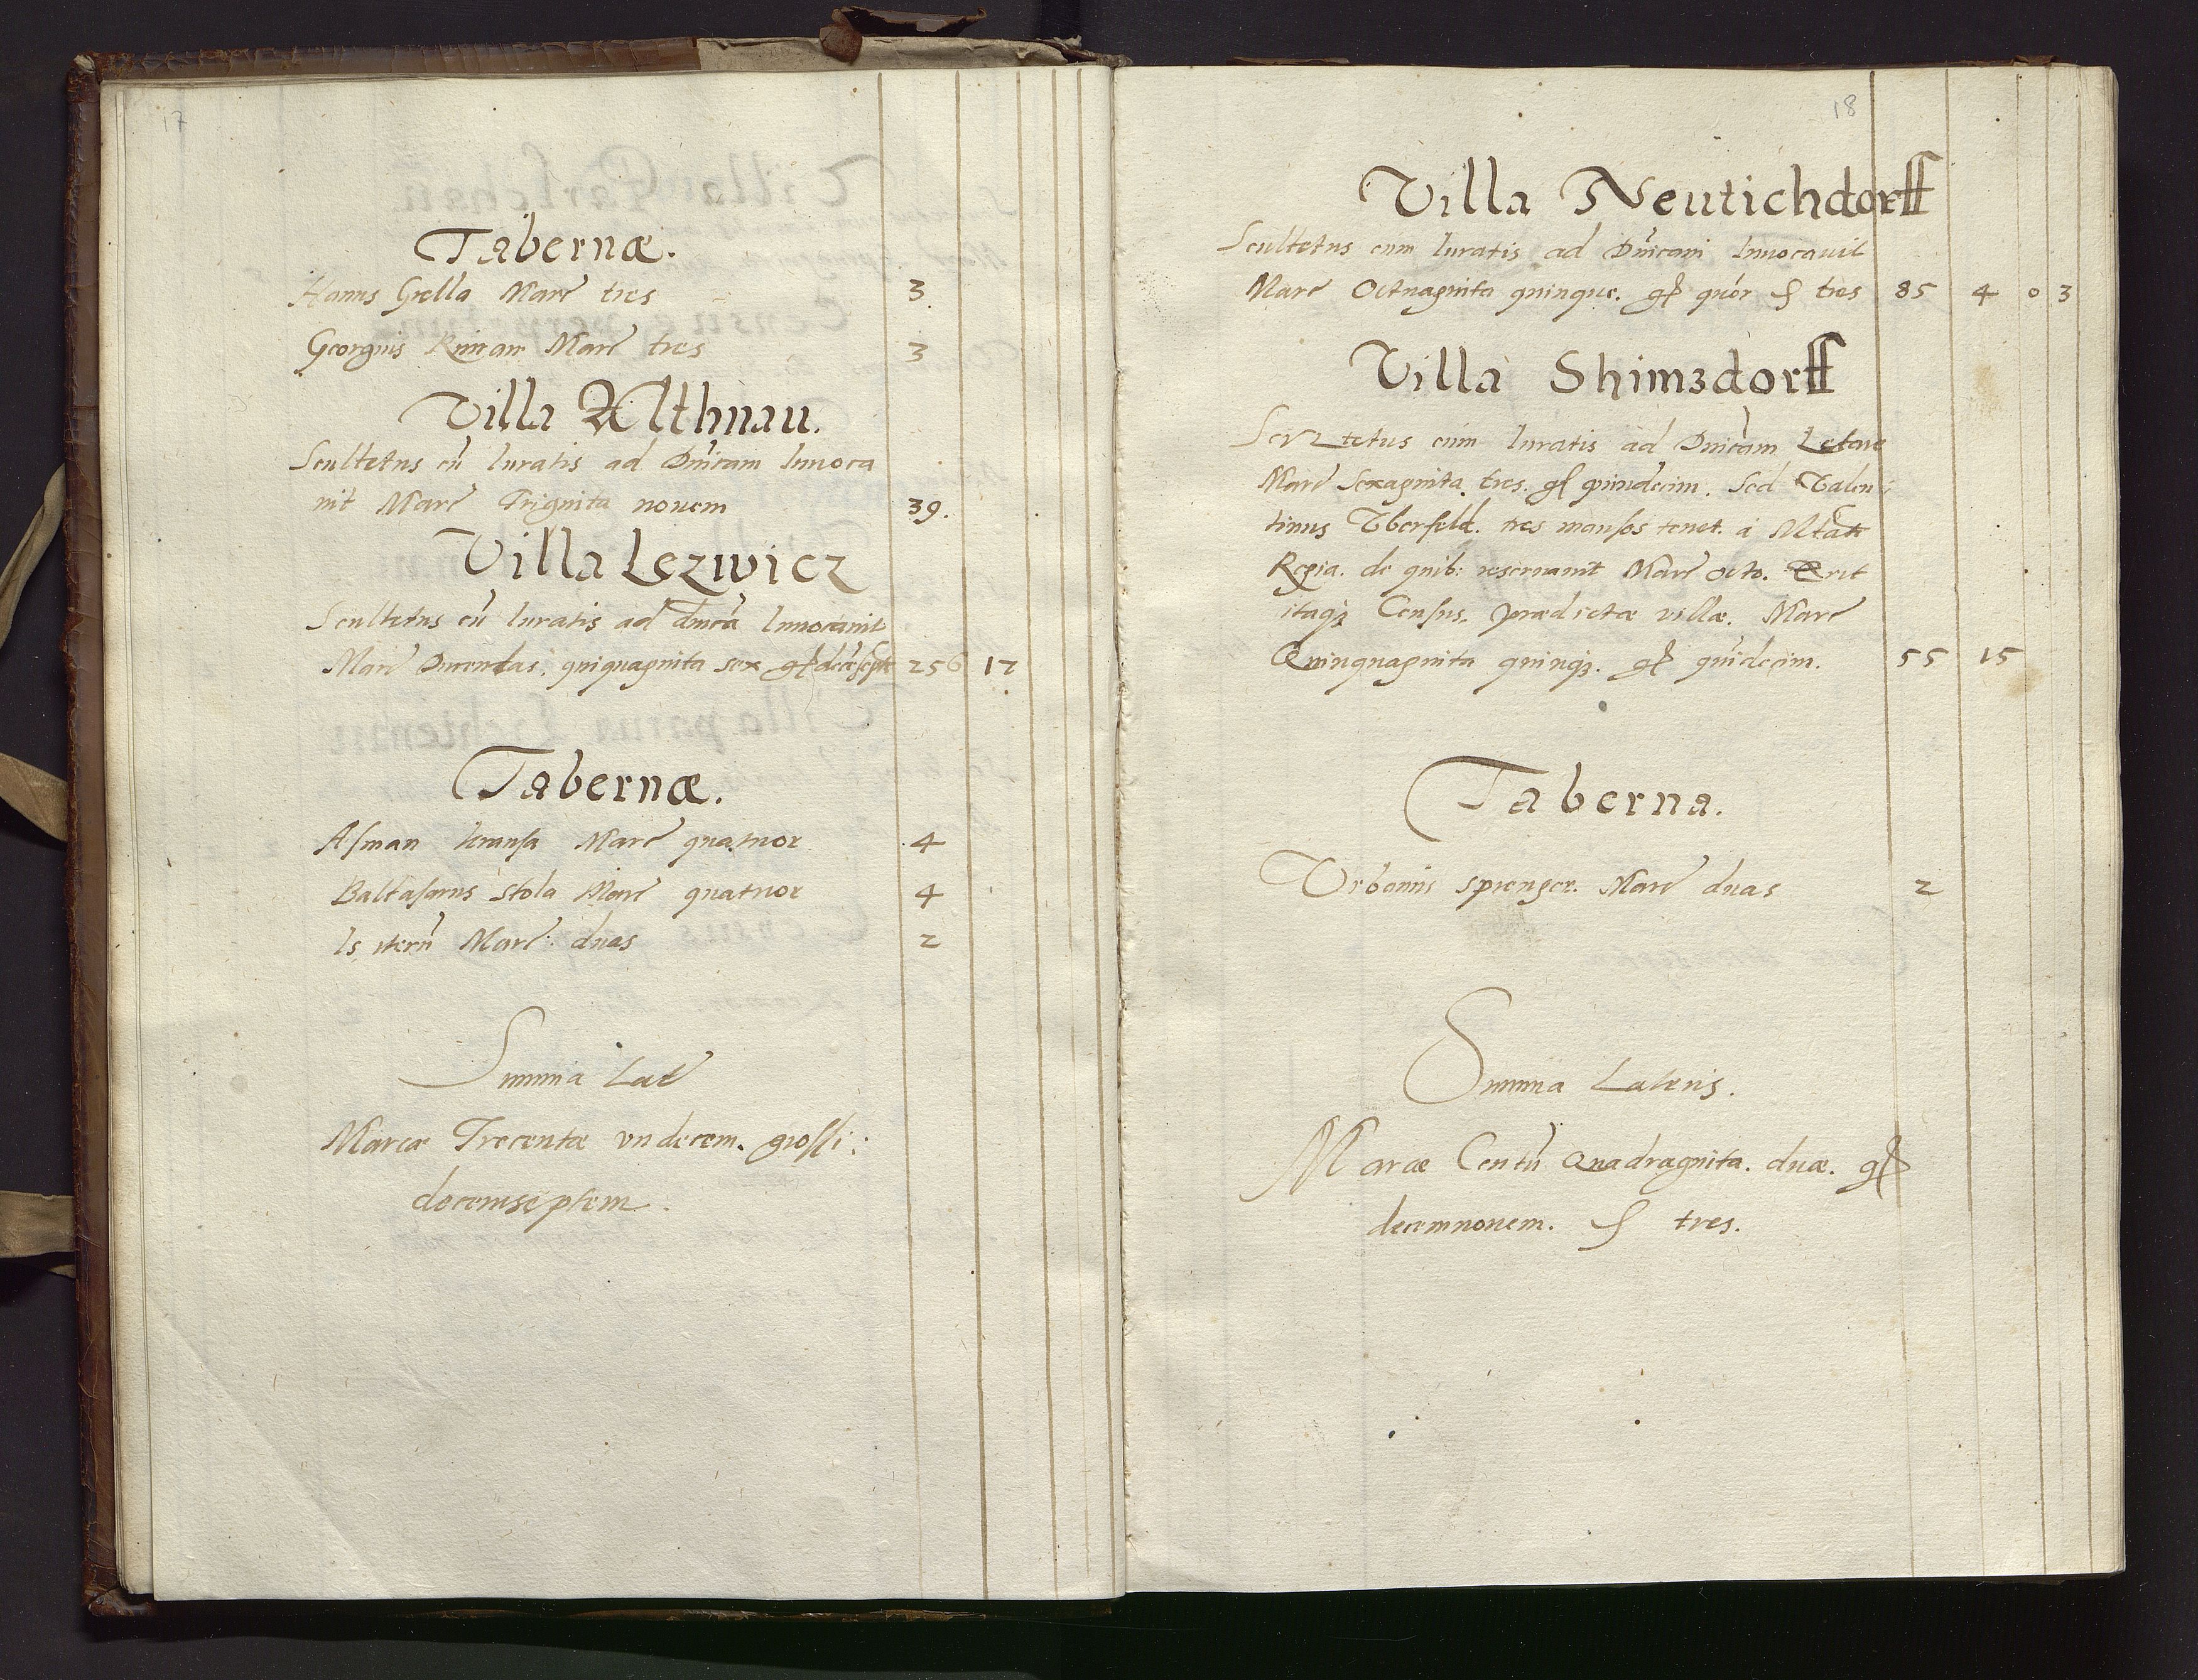 17
Tabernæ.
Hanns Grella Marc tres 3.
Georgius Marc tres 3
Villa Althnau.
Scultetus cū Iuratis ad Dnicam Inuoca
uit Marc Triginta nouem 39.
Villa Lezwicz
Scultetus cū Iuratis ad dnicā Inuocauit
Marc Ducentas. quiquaginta sex gſ decēsepte 256 17
Tabernæ.
Asman Marc quatuor 4
Baltasarus Stola Marc quatuor 4
Is iterū Marc: duas 2
Summa Lat
Marcæ Trecentæ vndecem. grossi:
decemseptem.
18
Villa Neutichdorff
Scultetus cum Iuratis ad Dnicam Inuocauit
Marc Octuaginta quinque. gſ quor ₰ tres 85 4 0 3
Villa Shimzdorff
Scultetus cum Iuratis ad Dnicam Letare
Marc Sexaginta tres. gſ quindecim. Sed Valen:
tinus Vberfeld. tres mansos tenet. a Mtate
Regia. de quib: reseruauit Marc octo. Erit
itaqꝫ Census. prædictæ villæ. Marc
Quinquaginta quinqꝫ. gſ quīdecim. 55 15
Taberna.
Vrbanus sprenger. Marc duas 2
Summa Lateris.
Marcæ Centū Quadraginta. duæ. gſ
decemnouem. ₰ tres.